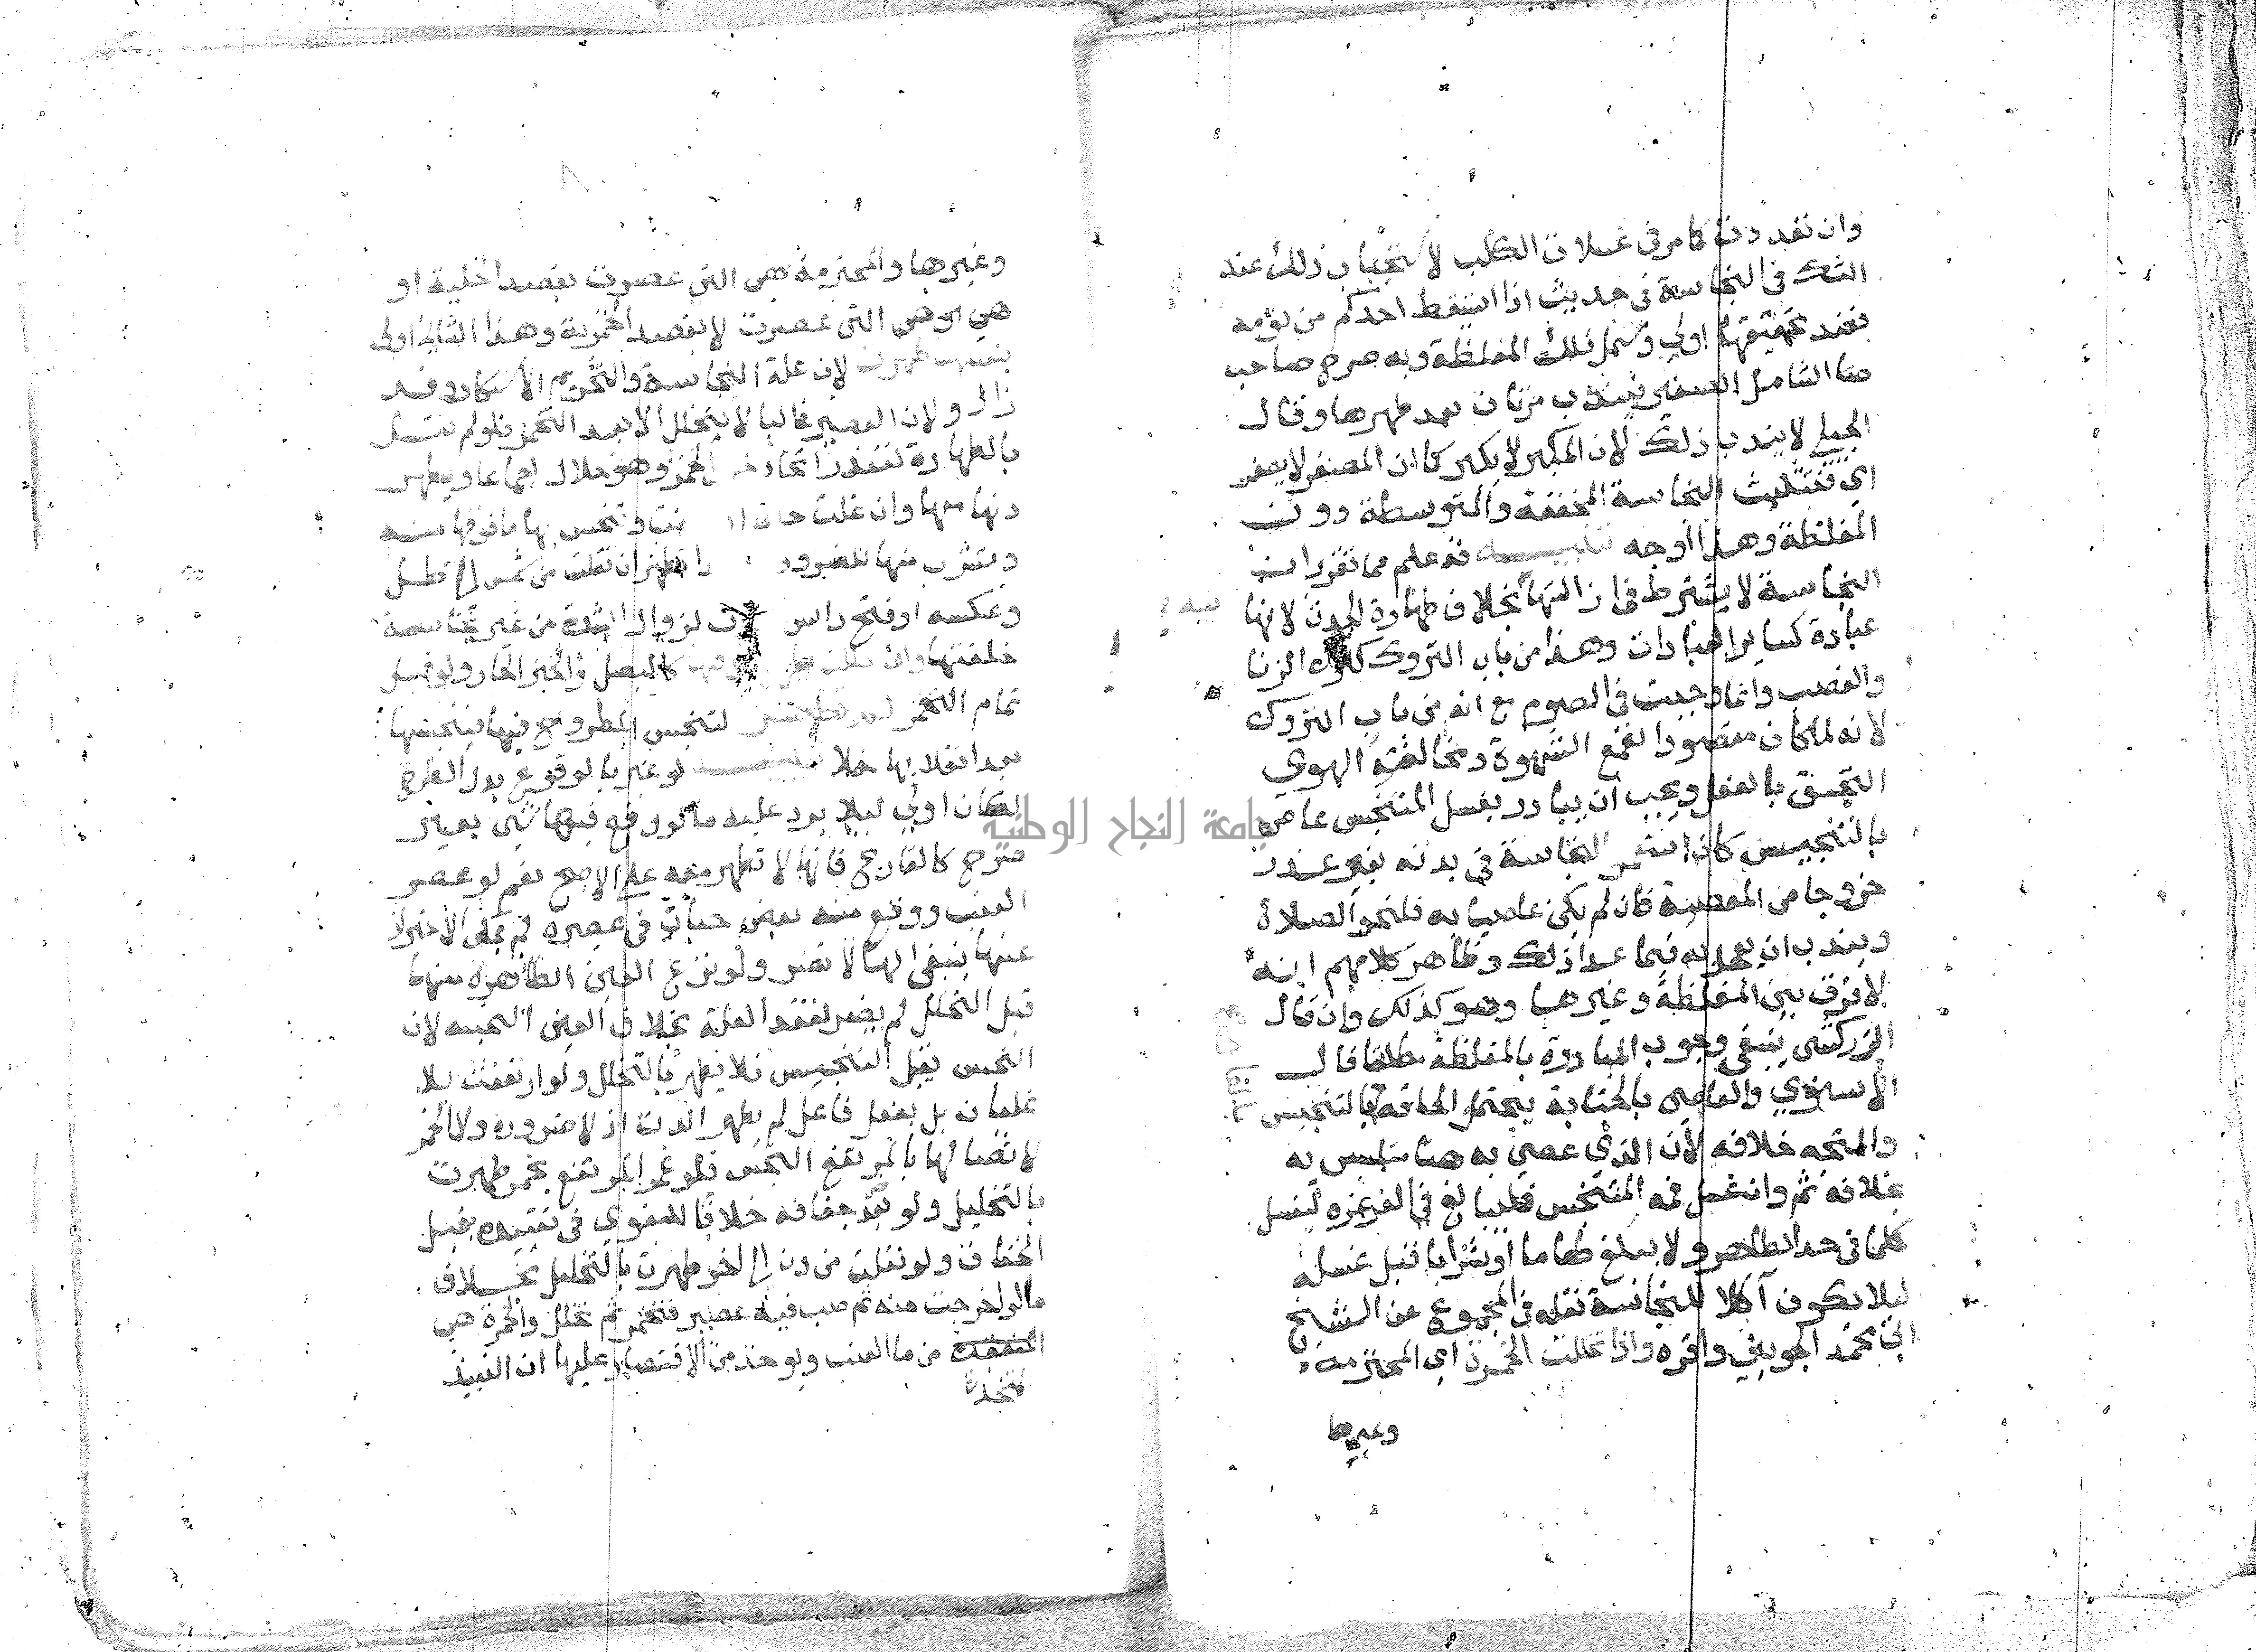 وان تعددت كما مر في غسلات الكلب لاستحباب ذلك عند
الشك في النجاسة في حديث اذا استيقظ احدكم من نومه
فعند تحققها اولى وشمل ذلك المغلظة وبه صرح صاحب
الشامل الصغير فيندب مرتان بعد طهرها وقال
الجيلي لا يندب ذلك لان المكبر لا يكبر كما ان المصغر لا يصغر
اي فتثليث النجاسة المخففة والمتوسطة دون
المغلظة وهذا اوجه تنبيه قد علم مما تقرر ان
النجاسة لا يشترط في ازالتها بخلاف طهارة الحدث لانها
عبادة كساير العبادات وهذا من باب التروك كترك الزنا
والغصب وانما وجبت في الصوم مع انه من باب التروك
لانه لما كان مقصودا لقمع الشهوة ومخالفة الهوي
التحق بالفعل ويجب ان يبادر بغسل المتنجس عاص
بالتنجيس كان استعمل النجاسة في بدنه بغير عذر
خروجا من المعصية فان لم يكن عاصيا به فلنحو الصلاة
ويندب ان يعجل به فيما عدا ذلك وظاهر كلامهم انه
لا فرق بين المغلظة وغيرها وهو كذلك وان قال
الزركشي ينبغي وجوب المبادرة بالمغلظة مطلقا قال
الاسنوي والعاصي بالجنابة يحتمل الحاقه بالتنجيس
والمتجه خلافه لان الذي عصى به هنا متلبس به
بخلافه ثم واذا غسل فمه المتنجس فليبالغ في الغرغرة ليغسل
كلما في حد الظاهر ولا يبلع طعاما او شرابا قبل غسله
ليلا يكون آكلا للنجاسة نقله في المجموع عن الشيخ
ابي محمد الجويني واقره واذا تخللت الخمرة اي المحترمة
وغيرها
وغيرها والمحترمة هي التي عصرت بقصد الخلية او
هي التي عصرت لا بقصد الخمرية وهذا الثاني اولى
بنفسها طهرت لان علة النجاسة والتحريم الاسكار وقد
زال ولان العصير غالبا لا يتخلل الا بعد التخمر فلو لم نقل
بالطهارة لتعذر اتخاذ الخمر وهو حلال اجماعا ويطهر
دنها معها وان غلت وتنجس بها ما فوقها منه
وتشرب منها للضرورة وتطهر ان نقلت من شمس الى ظل
وعكسه او فتح راس الدن لزوال الشدة من غير نجاسة
خلفتها كالبصل والخبز الحار ولو قبل
تمام التخمر لم تطهر لتنجس المطروح فيها فينجسها
بعد انقلابها خلا تنبيه لو عبر بالوقوع بدل الطرح
لكان اولى ليلا يرد عليه ما لو وقع فيها شي بغير
طرح كالقاء ريح فانها لا تطهر معه على الاصح نعم لو عصر
العنب ووقع منه بعض حبات في عصيره لم يمكن الاحتراز
عنها ينبغي انها لا تضر ولو نزع العين الطاهرة منها
قبل التخلل لم يضر لفقد العلة بخلاف العين النجسة لان
النجس يقبل التنجيس فلا يطهر بالتخلل ولو ارتفعت بلا
غليان بل بفعل فاعل لم يطهر الدن اذ لا ضرورة ولا الخمر
لاتصالها بالمرتفع النجس فلو غمر المرتفع بخمر طهرت
بالتخليل ولو بعد جفافه خلافا للبغوي في تقييده بقبل
الجفاف ولو نقلت من دن الى اخر طهرت بالتخليل بخلاف
ما لو اخرجت منه ثم صب فيه عصير فتخمر ثم تخلل والخمرة هي
المتخذة من ما العنب ويوخذ من الاقتصار عليها ان النبيذ
المتخذ
جامعة النجاح الوطنية